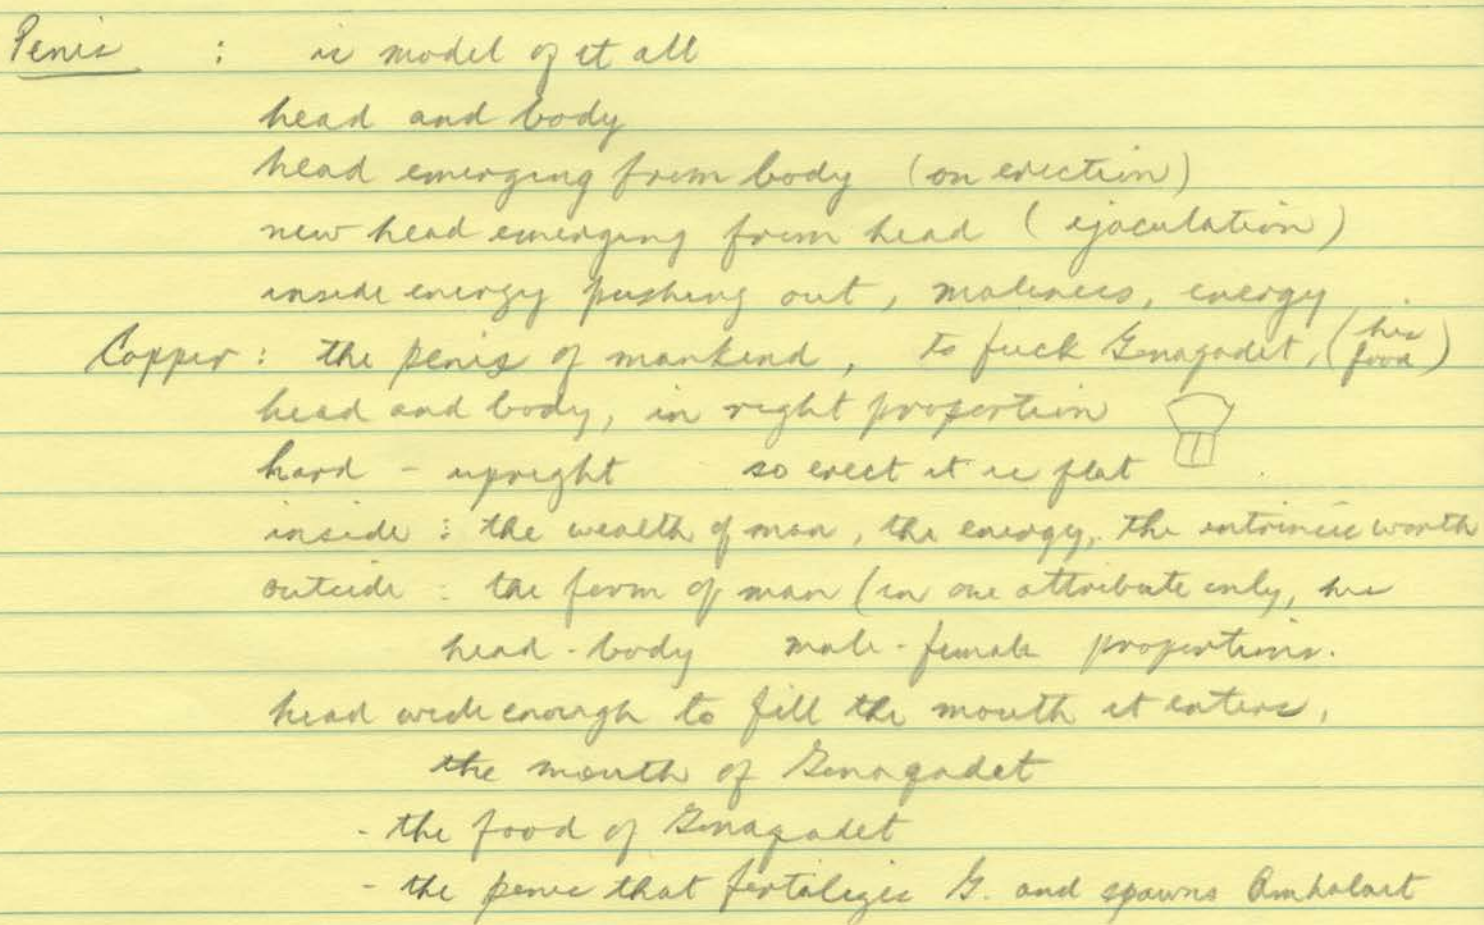 Penis : is model of it all
head and body
head emerging from body (on erection)
new head emerging from head (ejaculation)
inside energy pushing out, maleness, energy
Copper : the penis of mankind, to fuck Gonaqadet, (his food)
head and body, in right proportion
hard - upright so erect it is flat
inside : the wealth of man, the energy, the intrinsic worth
outside : the form of man (in one attribute only, his
head-body male-female proportions.
head wide enough to fill the mouth it enters,
the mouth of Gonaqadet
- the food of Gonaqadet
- the penis that fertilizes G. and spawns Amhalait